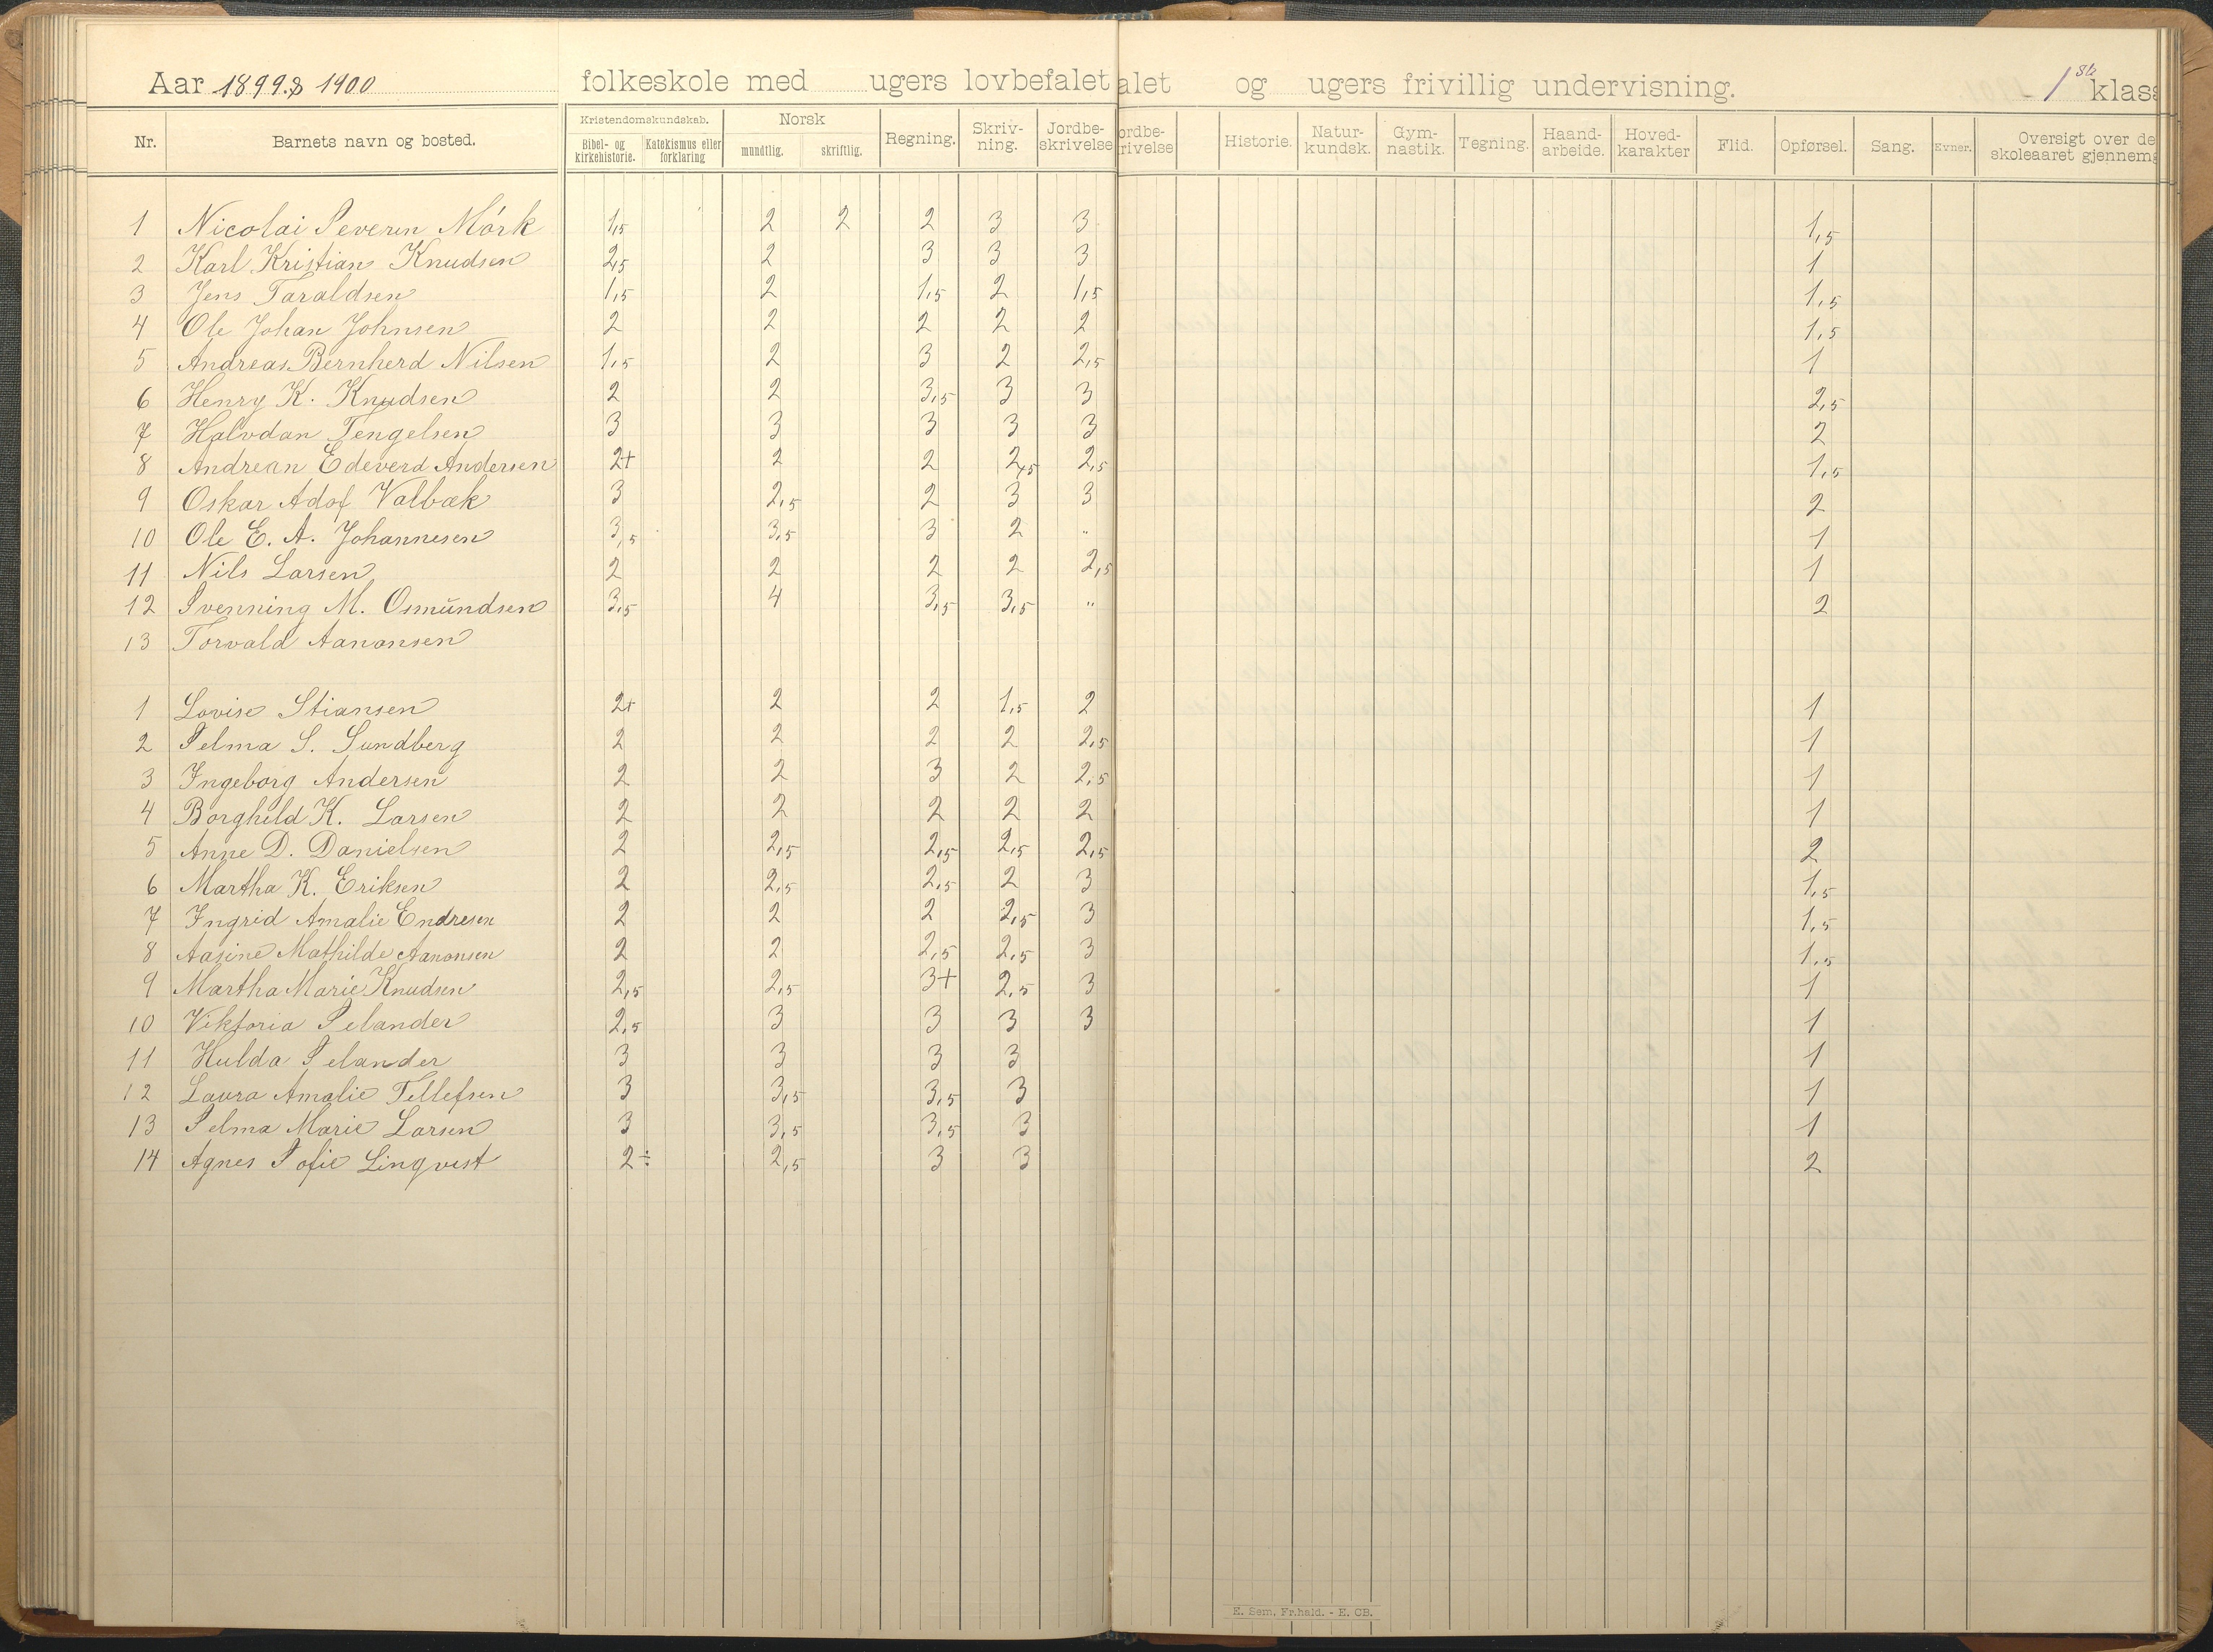 Aar 1899 & 1900 folkeskole med ugers lovbefalet alet og ugers frivillig undervisning. 1ste klass
Nr. Barnets navn og bosted. Kristendomskundskab. Bibel- og kirkehistorie. Katekismus eller forklaring Norsk mundtlig. skriftlig. Regning. Skriv-ning. Jordbe-skrivelse ordbe-rivelse Historie. Natur-kundsk. Gym-nastik. Tegning. Haand-arbeide. Hoved-karakter Flid. Opførsel. Sang. Evner. Oversigt over de skoleaaret gjennemg
1 Nicolai Severin Mörk 1,5 2 2 2 3 3 1,5
2 Karl Kristian Knudsen 2,5 2 3 3 3 1
3 Jens Taraldsen 1,5 2 1,5 2 1,5 1,5
4 Ole Johan Johnsen 2 2 2 2 2 1,5
5 Andreas Bernherd Nilsen 1,5 2 3 2 2,5 1
6 Henry K. Knudsen 2 2 3,5 3 3 2,5
7 Halvdan Tengelsen 3 3 3 3 3 2
8 Andrean Edeverd Andersen 2+ 2 2 2,5 2,5 1,5
9 Oskar Adof Valbæk 3 2,5 2 3 3 2
10 Ole E. A. Johannesen 3,5 3,5 3 2 " 1
11 Nils Larsen 2 2 2 2 2,5 1
12 Svenning M. Osmundsen 3,5 4 3,5 3,5 " 2
13 Torvald Aanonsen
1 Lovise Stiansen 2+ 2 2 1,5 2 1
2 Selma S. Sundberg 2 2 2 2 2,5 1
3 Ingeborg Andersen 2 2 3 2 2,5 1
4 Borghild K. Larsen 2 2 2 2 2 1
5 Anne D. Danielsen 2 2,5 2,5 2,5 2,5 2
6 Martha K. Eriksen 2 2,5 2,5 2 3 1,5
7 Ingrid Amalie Endresen 2 2 2 2,5 3 1,5
8 Aasine Mathilde Aanonsen 2 2 2,5 2,5 3 1,5
9 Martha Marie Knudsen 2,5 2,5 3+ 2,5 3 1
10 Viktoria Selander 2,5 3 3 3 3 1
11 Hulda Selander 3 3 3 3 1
12 Laura Amalie Tellefsen 3 3,5 3,5 3 1
13 Selma Marie Larsen 3 3,5 3,5 3 1
14 Agnes Sofie Lingvest 2÷ 2,5 3 3 2
E. Sem, Fr.hald. - E. CB.